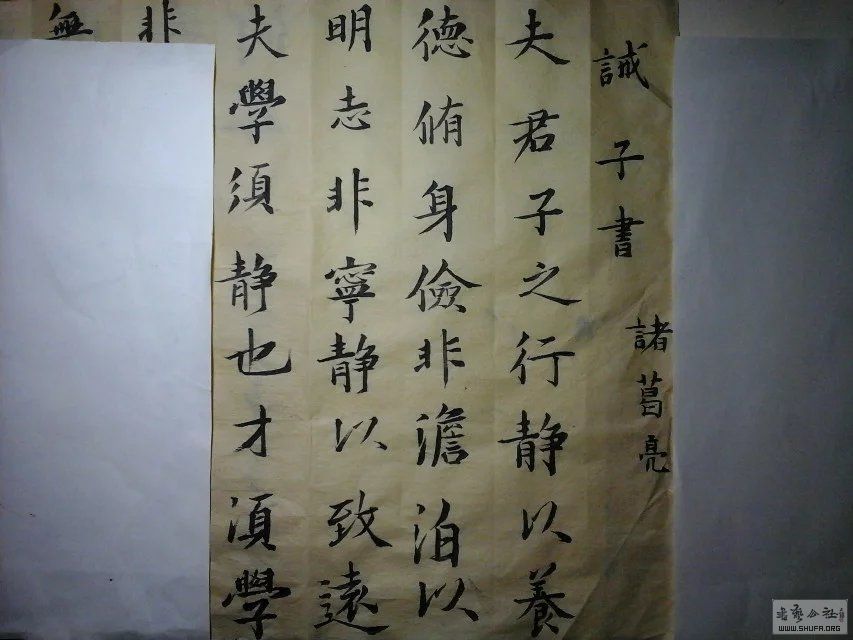 誡子書
諸葛亮
夫君子之行静以養
德脩身儉非澹泊以
明志非寧静以致遠
夫學須静也才須學
非
無
書藝公社
WWW.SHUFA.ORG